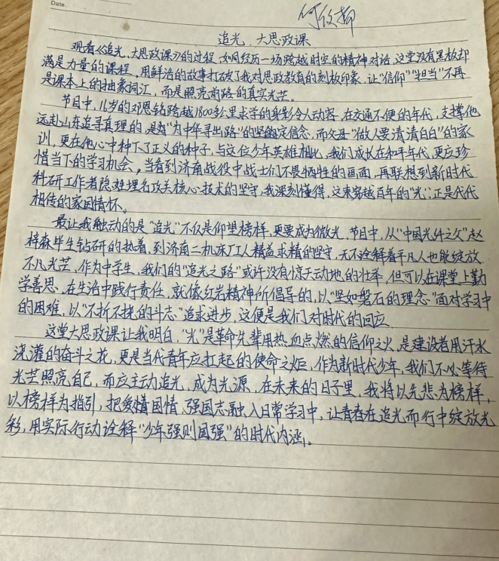 Date.
何欣柳
追光，大思政课
观看《追光，大思政课》的过程，如同经历一场跨越时空的精神对话，这堂没有黑板却
满是力量的课程，用鲜活的故事打破了我对思政教育的刻板印象，让“信仰”“担当”不再
是课本上的抽象词汇，而是照亮前路的真实光芒。
节目中，16岁的邓恩铭跨越1800多里求学的身影令人动容，在交通不便的年代，支撑他
远赴山东追寻真理的，是为“为中华寻出路”的坚定信念，而父母“做人要清清白白”的家
训，更在他心中种下了正义的种子，与这位少年英雄相比，我们成长在和平年代，更应珍
惜当下的学习机会，当看到济南战役中战士们不畏牺牲的画面，再联想到新时代
科研工作者隐姓埋名攻关核心技术的坚守，我深刻懂得，这束穿越百年的“光”，正是代代
相传的家国情怀。
最让我触动的是“追光”不仅是仰望榜样，更要成为微光，节目中，从“中国光纤之父”赵
梓森毕生钻研的执着，到济南二机床厂工人精益求精的坚守，无不诠释着平凡人也能绽放
不凡光芒，作为中学生，我们的“追光之路”或许没有惊天动地的壮举，但可以在课堂上勤
学善思，在生活中践行责任，就像红岩精神所倡导的，以“坚如磐石的理念”面对学习中
的困难，以“不折不挠的斗志”追求进步，这便是我们对时代的回应。
这堂大思政课让我明白，“光”是革命先辈用热血点燃的信仰之火，是建设者用汗水
浇灌的奋斗之花，更是当代青年应扛起的使命之炬，作为新时代少年，我们不必等待
光芒照亮自己，而应主动追光，成为光源，在未来的日子里，我将以先悲为榜样，
以榜样为指引，把爱情国情、强国志融入日常学习中，让青春在追光而行中绽放光
彩，用实际行动诠释“少年强则国强”的时代内涵。